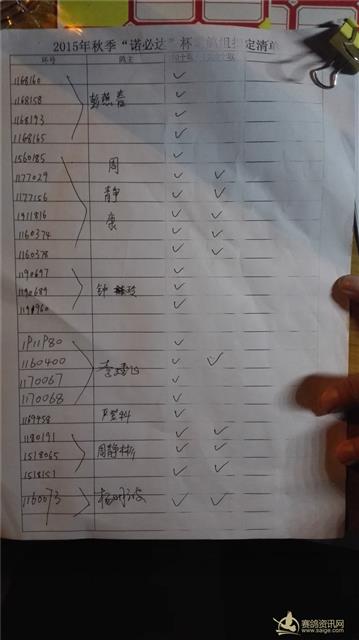 2015年秋季“诺必达”杯 定清单
环号 鸽主
1168160
1168158 彭燕春
1168193
1168165
1560185 周
1177029
1177156 静
1911816 康
1160374
1160378
1190697
1190689 钟
1190960
1160400
1170067 李
1170068
1169458
1180191
1518065 周静彬
1518151
1160073 杨
赛鸽资讯网
www.saige.com